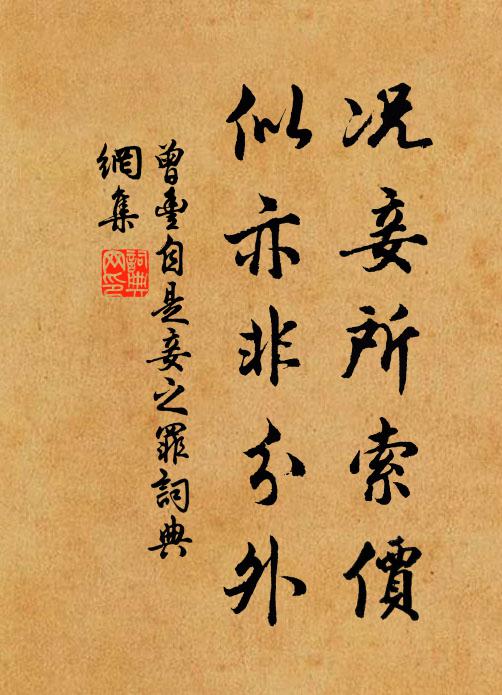 况妾所索價
似亦非分外
曾豐自是妾之罪詞典
網集
詞典
网印